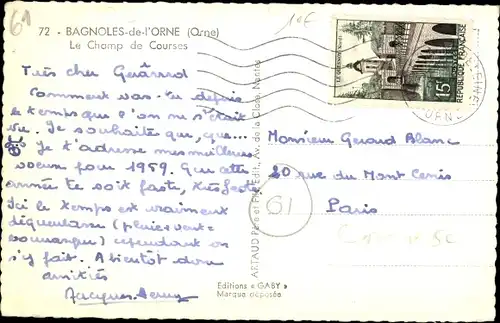 61
10€
72 - BAGNOLES-de-l'ORNE (Orne)
Le Champ de Courses
Très cher Gérard
Comment vas-tu depuis
le temps que l'on ne s'était
vu. Je souhaite que, que...
Je t'adresse mes meilleurs
voeux pour 1959. Que cette
année te soit faste, très faste
Ici le temps est vraiment
dégueulasse (pluie + vent =
) cependant on
s'y fait. A bientôt donc
amitiés
Jacques
ARTAUD Père et Fils, Édit., Av. de la Close, Nantes
LE QUESNOY NORD
15F
REPUBLIQUE FRANÇAISE
ORNE
Monsieur Gerard Blanc
20 rue du Mont Cenis
Paris
61
Editions « GABY »
Marque déposée